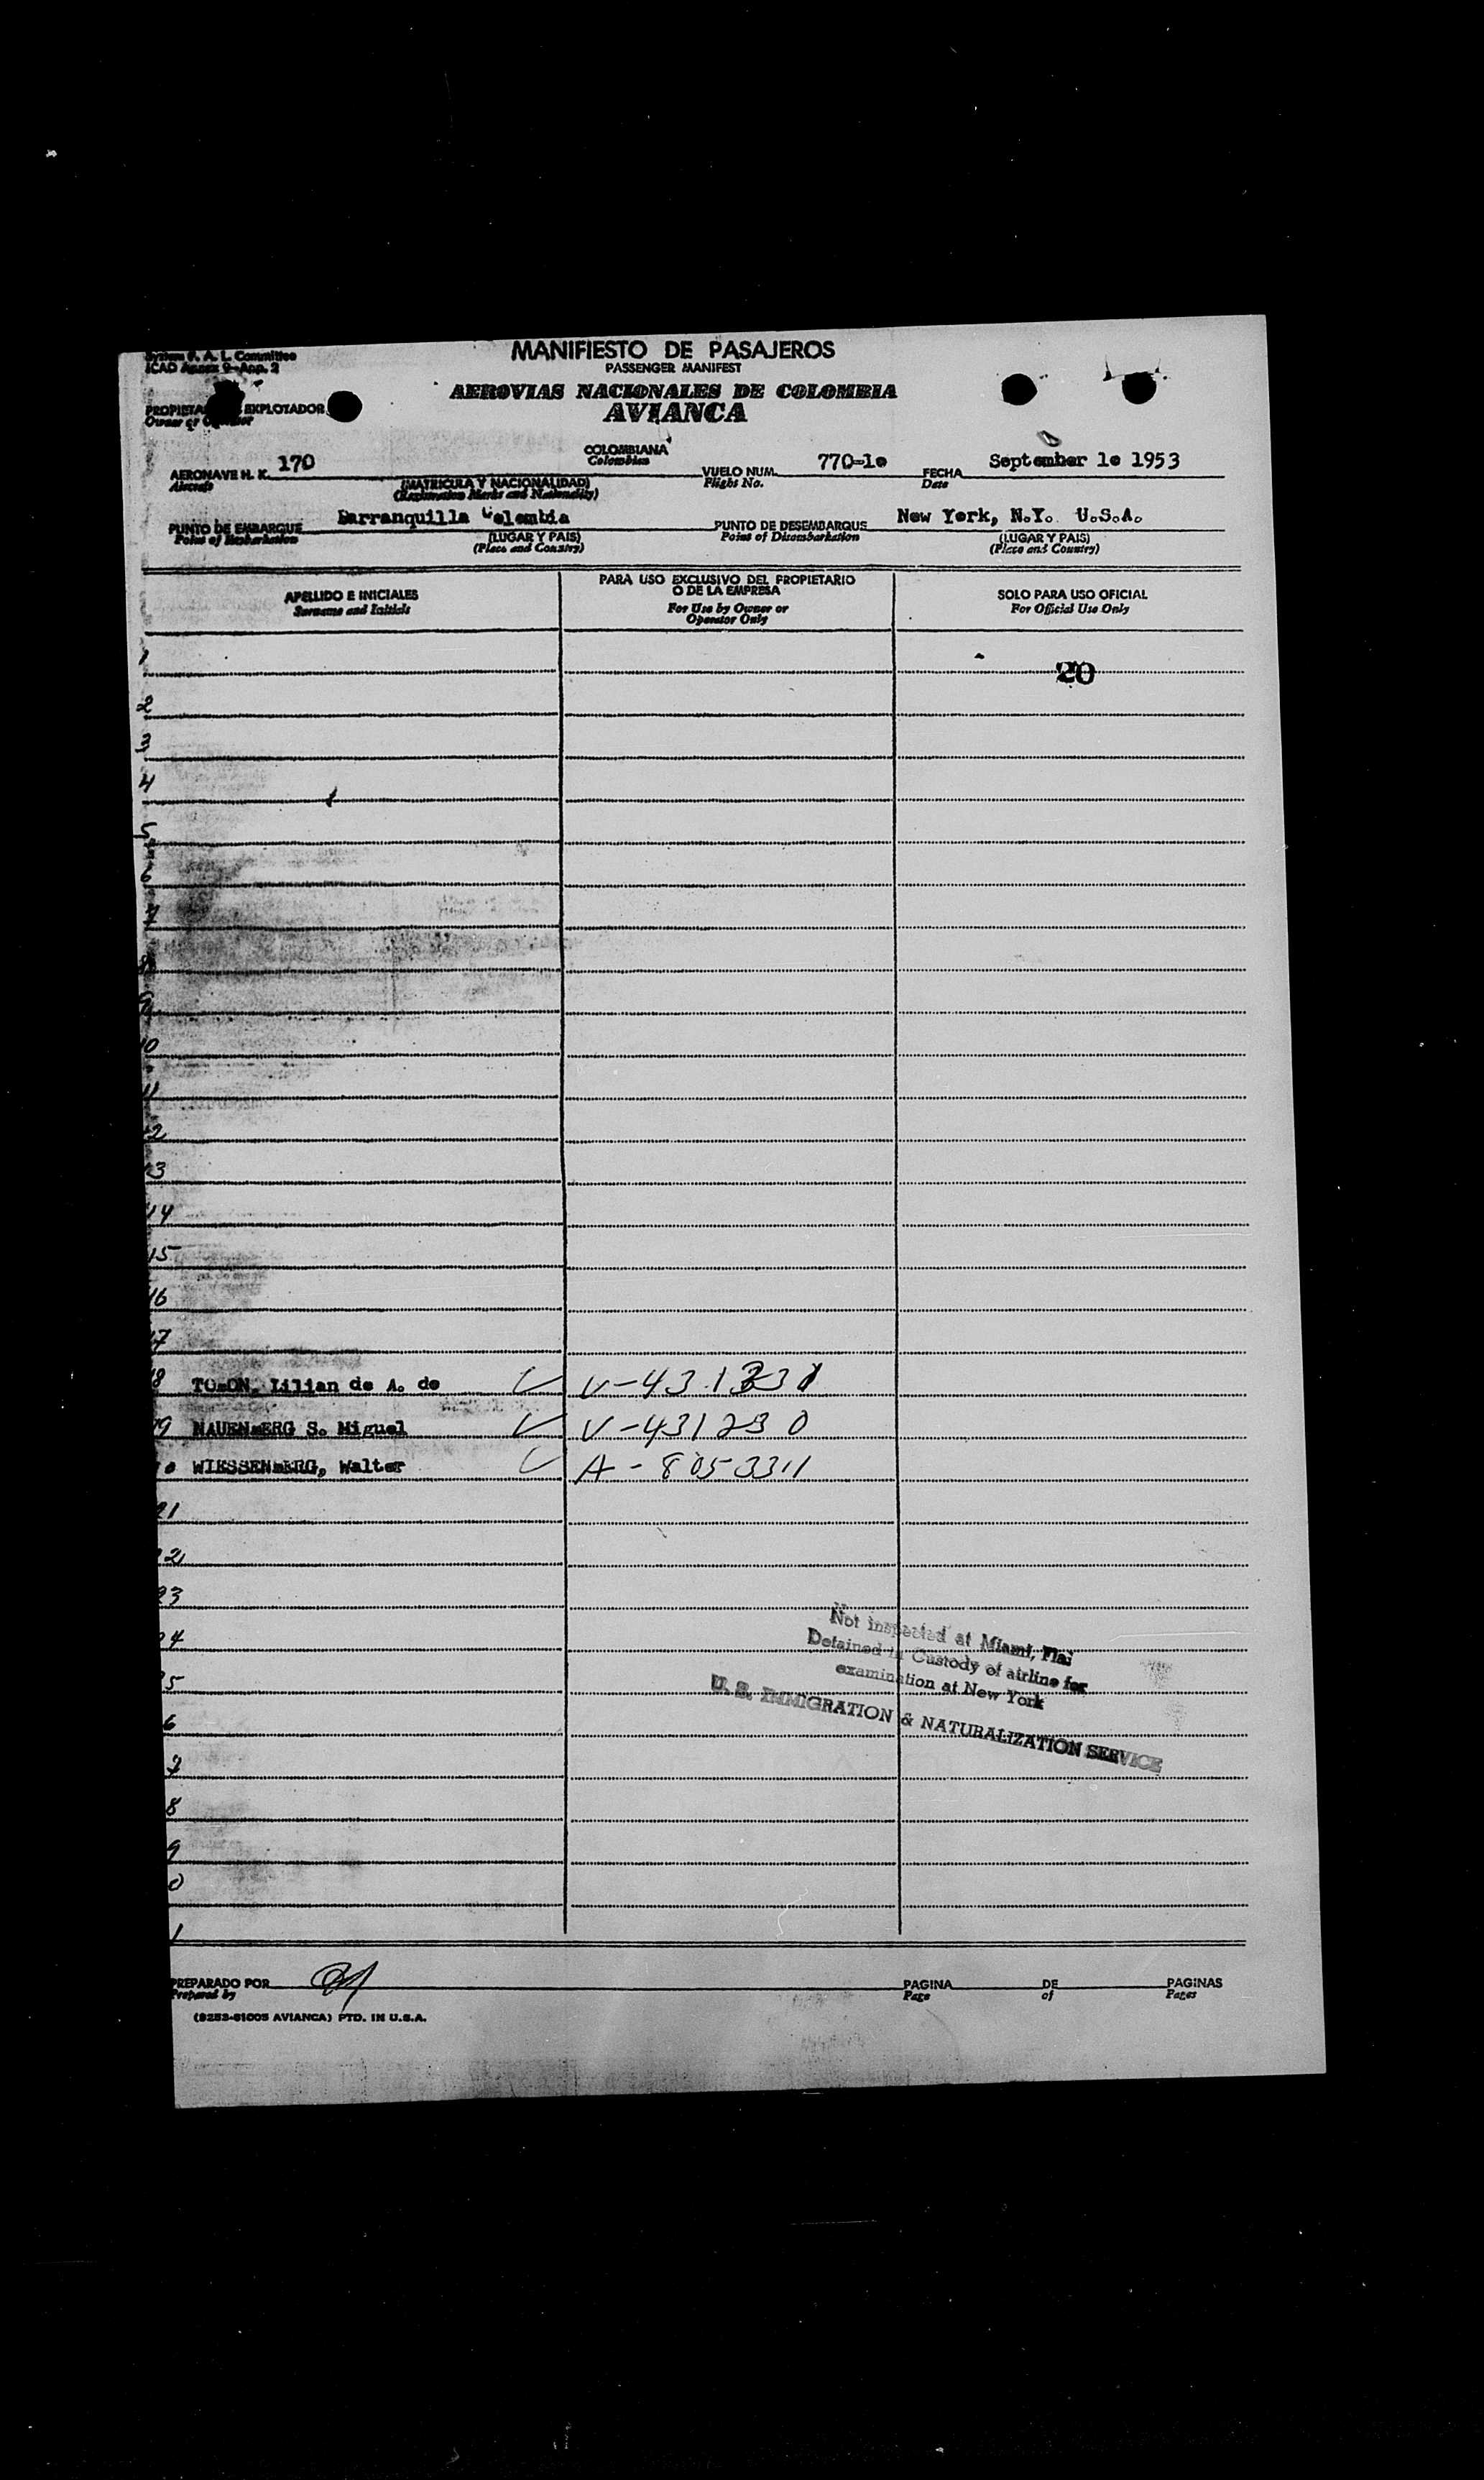 System F. A. L. Committee
ICAO Annex 9-App. 2
MANIFIESTO DE PASAJEROS
PASSENGER MANIFEST
AEROVIAS NACIONALES DE COLOMBIA
AVIANCA
EXPLOTADOR
Owner or Operator
AERONAVE H. K. 170
Aircraft
COLOMBIANA
Colombian
(MATRICULA Y NACIONALIDAD)
(Registration Marks and Nationality)
VUELO NUM. 770-1o
Flight No.
FECHA September 1o 1953
Date
PUNTO DE EMBARQUE Barranquilla Colombia
Point of Embarkation
(LUGAR Y PAIS)
(Place and Country)
PUNTO DE DESEMBARQUE New York, N.Y. U.S.A.
Point of Disembarkation
(LUGAR Y PAIS)
(Place and Country)
APELLIDO E INICIALES
Surname and Initials
PARA USO EXCLUSIVO DEL PROPIETARIO
O DE LA EMPRESA
For Use by Owner or
Operator Only
SOLO PARA USO OFICIAL
For Official Use Only
1
20
2
3
4
5
6
7
8
9
10
11
12
13
14
15
16
17
18 Lilian de A. de V-431331
19 NAUENBERG S. Miguel V-431230
WIESSENBERG, Walter A-8053311
21
2
23
24
5
6
7
8
9
0
1
Not inspected at Miami, Fla.
Detained in Custody of airline for
examination at New York
U. S. IMMIGRATION & NATURALIZATION SERVICE
PREPARADO POR
Prepared by
PAGINA DE PAGINAS
Page of Pages
(8253-61005 AVIANCA) PTD. IN U.S.A.